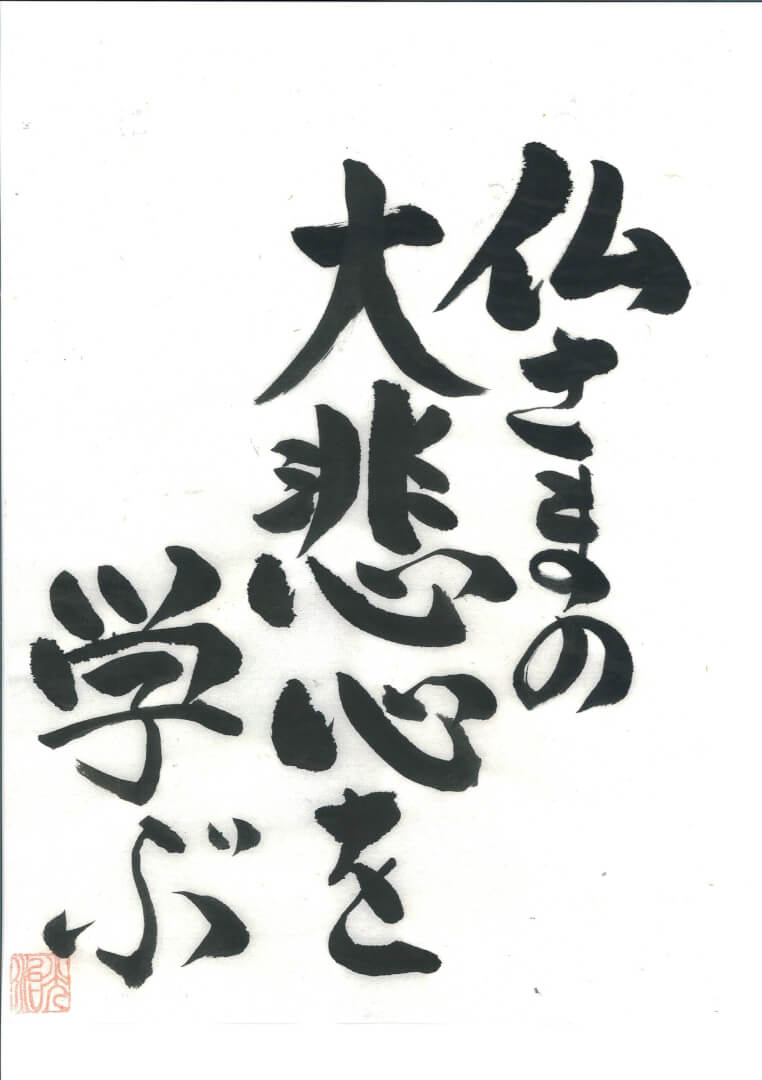 仏さまの
大悲心を
学ぶ